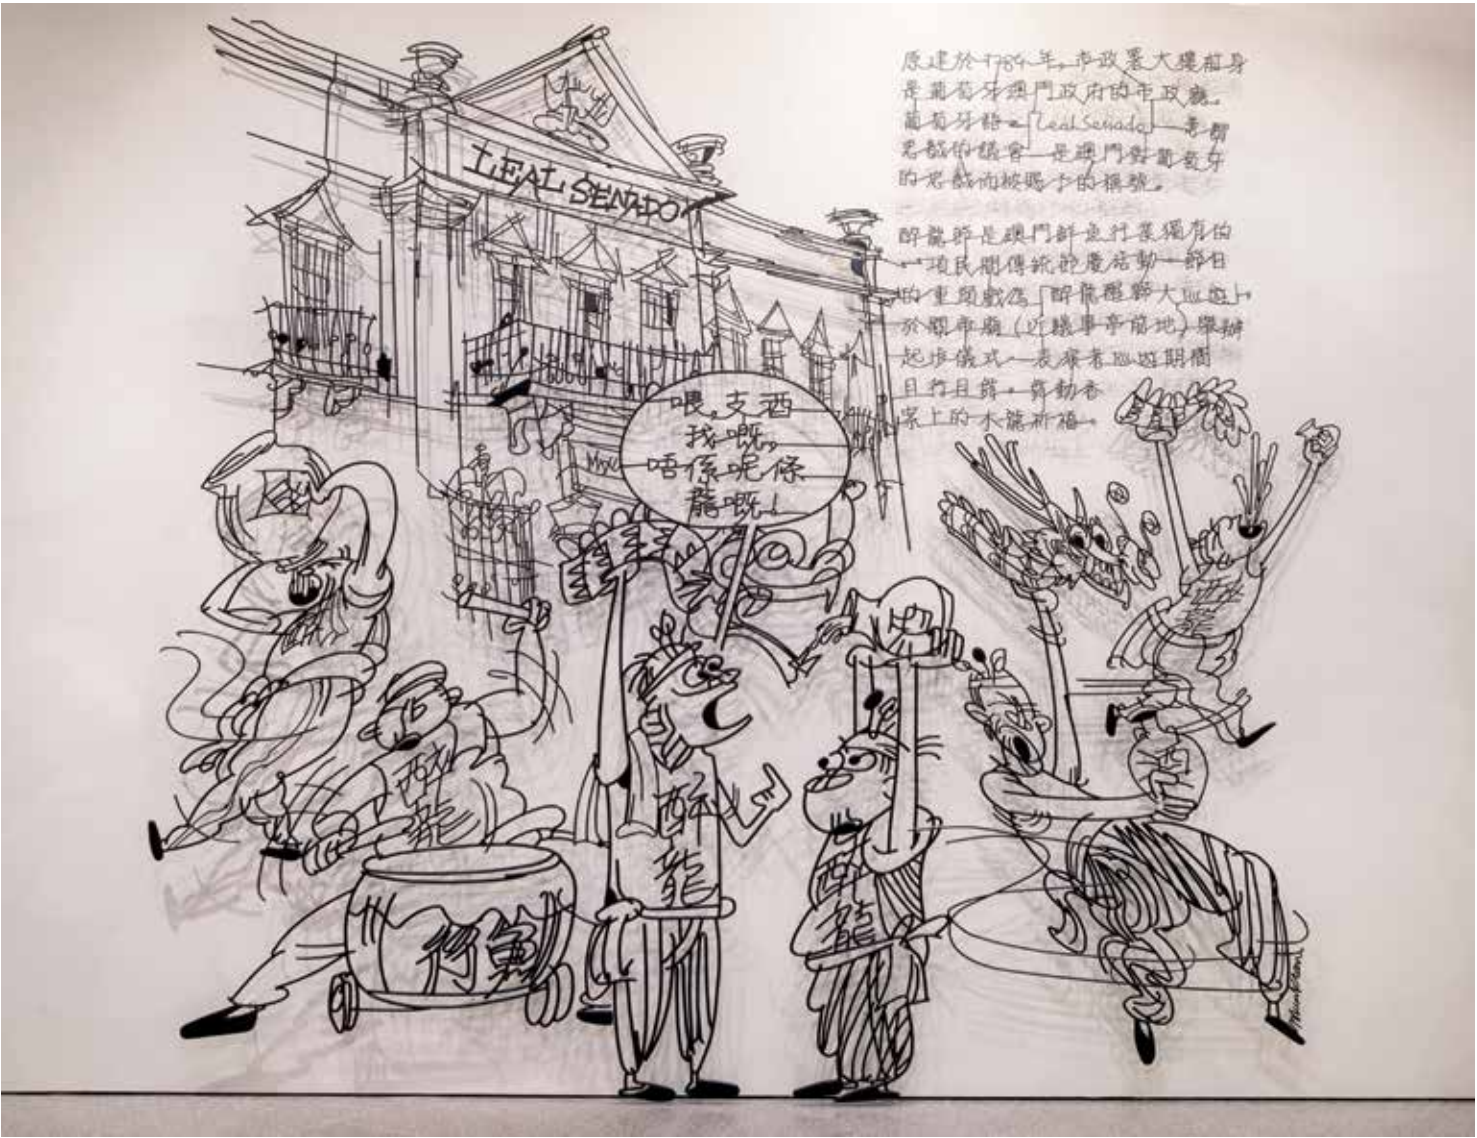 原建於1784年，市政署大樓前身
是葡萄牙澳門政府的市政廳。
葡萄牙語「Leal Senado」意謂
忠誠的議會—是澳門對葡萄牙
的忠誠而被賜予的稱號。
醉龍節是澳門鮮魚行業獨有的
一項民間傳統節慶活動。節日
的重頭戲為「醉龍醒獅大巡遊」，
於關帝廟（近議事亭前地）舉辦
起步儀式。表演者巡遊期間
且行且舞。舞動香
案上的木龍祈福。
LEAL SENADO
喂，支酒
我嘅。
唔係呢條
龍嘅！
醉龍
醉龍
醉龍
醉龍
行魚